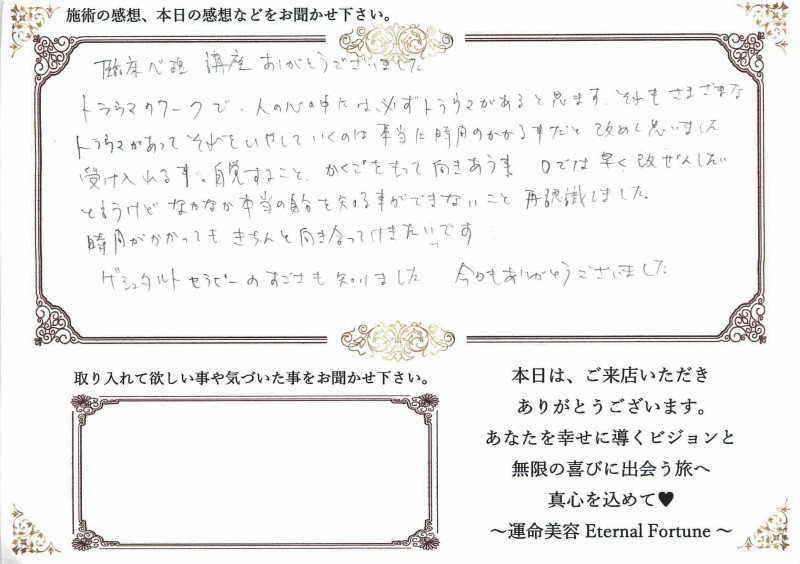 施術の感想、本日の感想などをお聞かせ下さい。
臨床心理 講座 ありがとうございました
トラウマのワークで、人の心の中には必ずトラウマがあると思ます それもさまざまな
トラウマがあって それをいやしていくのは 本当に 時間のかかる事だと 改めて思いました
受け入れる事、自覚すること、かくごをもって 向きあう事 口では 早く改ぜんしたい
ともうけど なかなか 本当の自分を知る事ができないこと 再認識しました。
時間がかかっても きちんと向き合って行きたいです
ゲシュタルトセラピーのすごさも 知りました 今日もありがとうございました
取り入れて欲しい事や気づいた事をお聞かせ下さい。
本日は、ご来店いただき
ありがとうございます。
あなたを幸せに導くビジョンと
無限の喜びに出会う旅へ
真心を込めて♥
～運命美容 Eternal Fortune ～